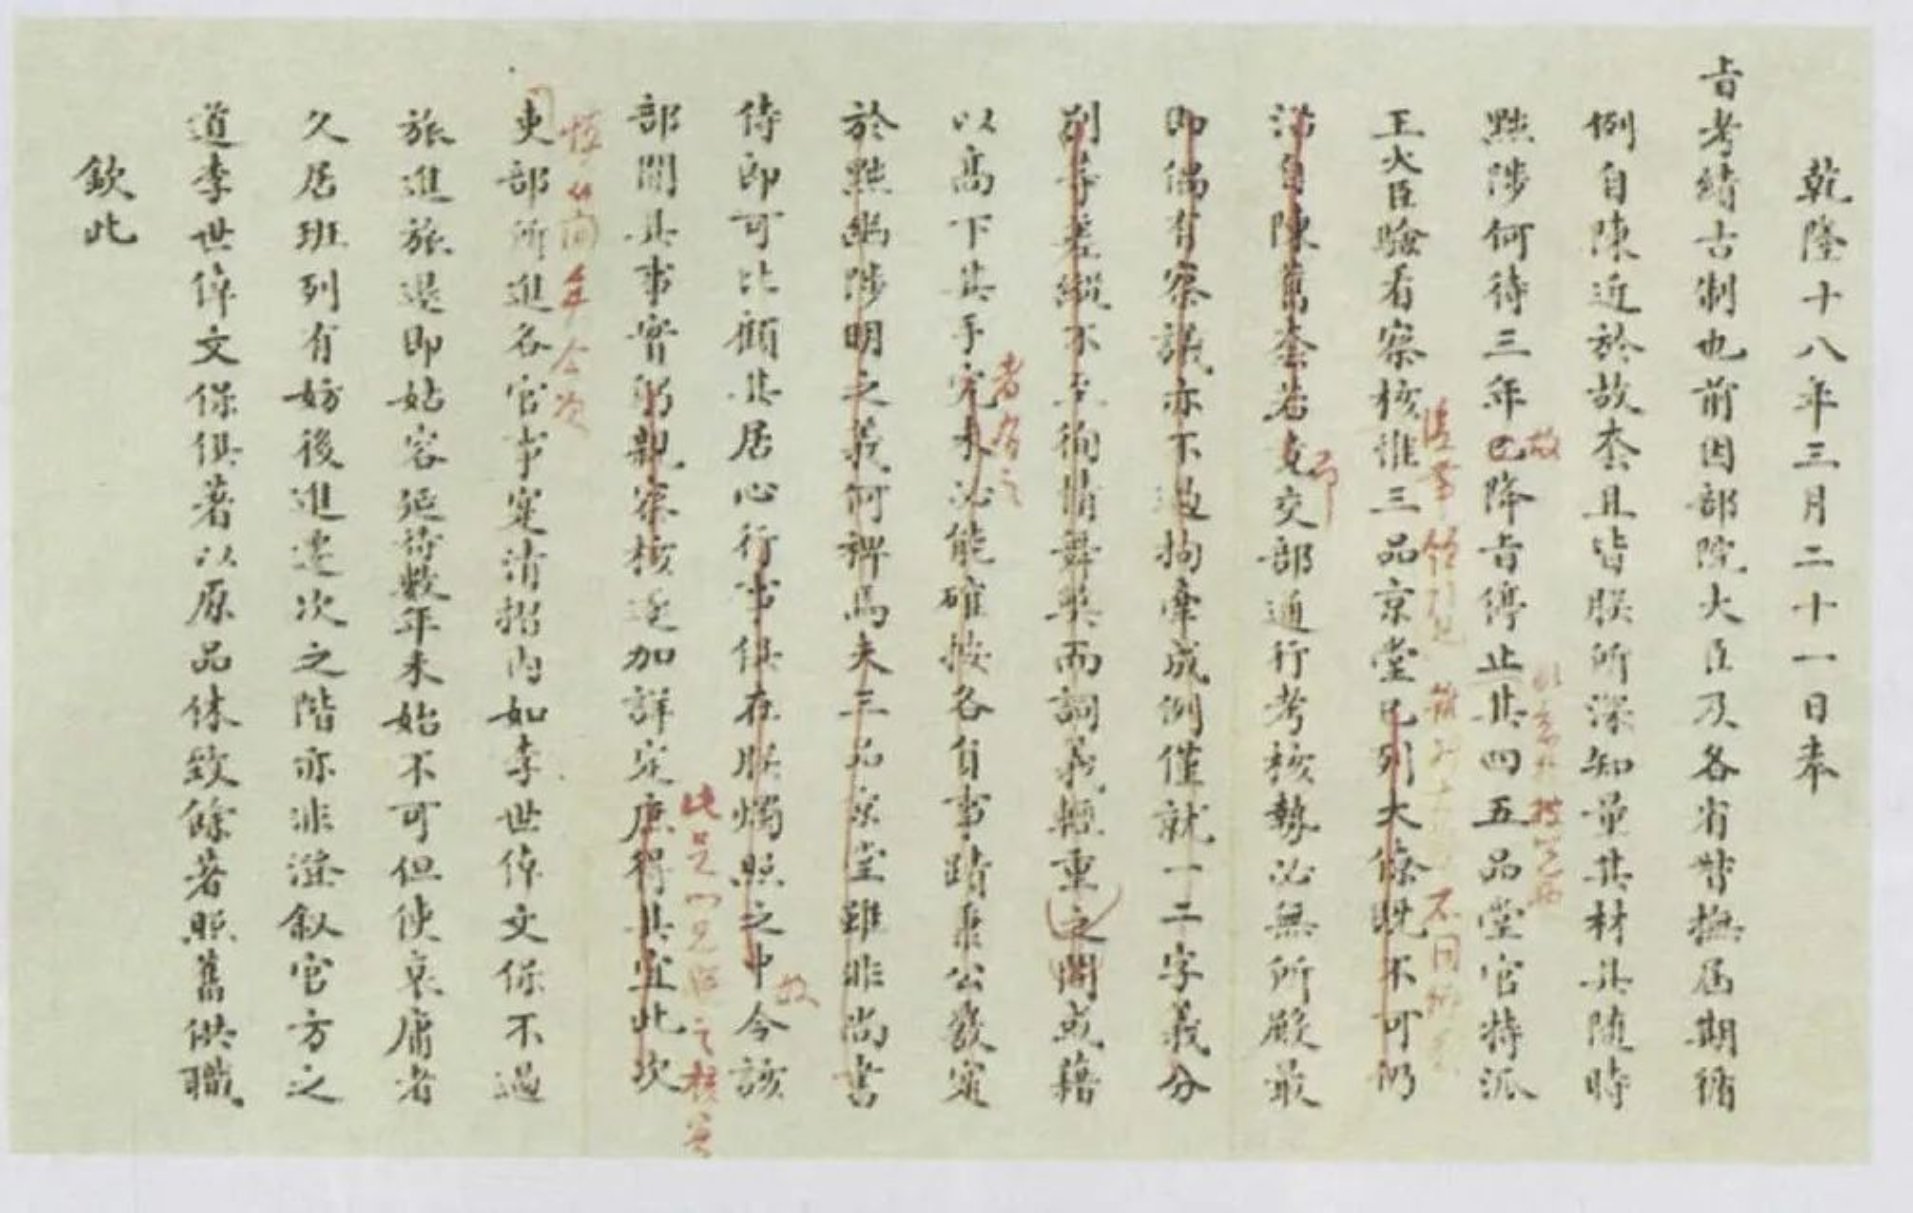 乾隆十八年三月二十一日奉
旨考績古制也前因部院大臣及各省督撫屆期循
例自陳近於故套且皆朕所深知量其材具隨時
黜陟何待三年已降旨停止其四五品堂官特派
故
王大臣驗看察核惟三品京堂已列大僚既不可仍
不同
沿自陳舊套若交部通行考核勢必無所殿最
即偶有察議亦不過拘牽成例僅就一二字義分
別等差縱不至徇情舞弊而詞義輕重之間或藉
以高下其手究未必能確按各員事蹟秉公發定
者有之
於黜幽陟明之義何裨焉夫三品京堂雖非尚書
侍郎可比顧其居心行事俱在朕燭照之中今該
故
部開其事實朕躬親察核逐加詳定庶得其宜此次
此是
之
吏部所進各官事實清摺內如李世倬文保不過
年今次
旅進旅退即姑容延待數年未始不可但使衰庸者
久居班列有妨後進遷次之階亦非澄敘官方之
道李世倬文保俱著以原品休致餘著照舊供職
欽此